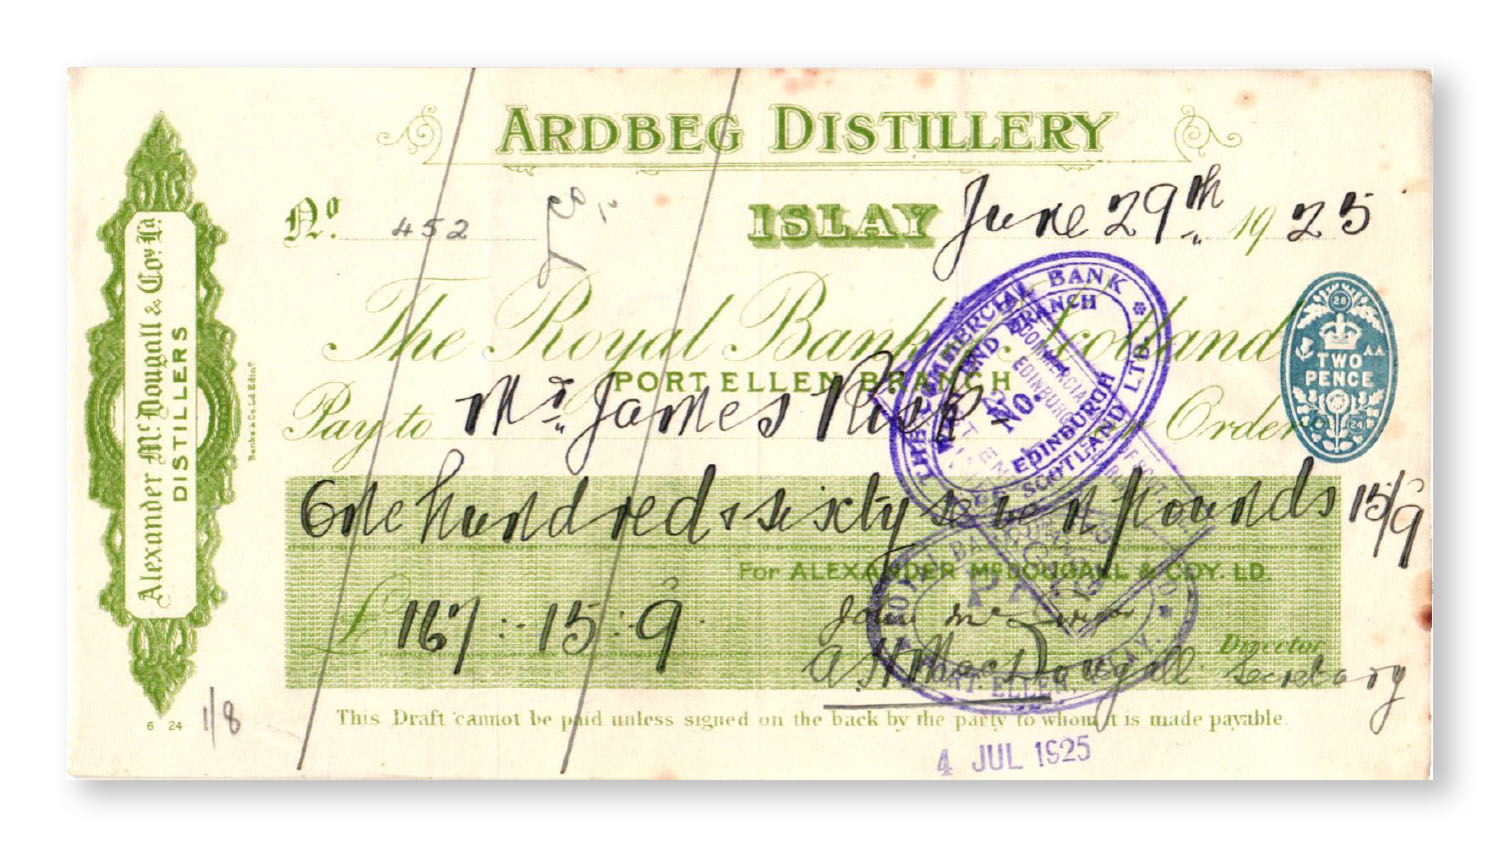 ARDBEG DISTILLERY
No. 452
& Co.
ISLAY June 29th 1925
The Royal Bank of Scotland
PORT ELLEN BRANCH
Pay to Mr. James Risk or Order
One hundred & sixty seven pounds 15/9
For ALEXANDER McDOUGALL & COY. LD.
£ 167 :- 15 : 9.
Director
Secretary
This Draft cannot be paid unless signed on the back by the party to whom it is made payable.
4 JUL 1925
Alexander McDougall & Coy. Ld.
DISTILLERS
Banks & Co. Ld. Edinr.
6 24
1/8
TWO
PENCE
A.A.
28
24
THE COMMERCIAL BANK
SCOTLAND LTD.
WEST END BRANCH
No.
EDINBURGH
PORT ELLEN, ISLAY.